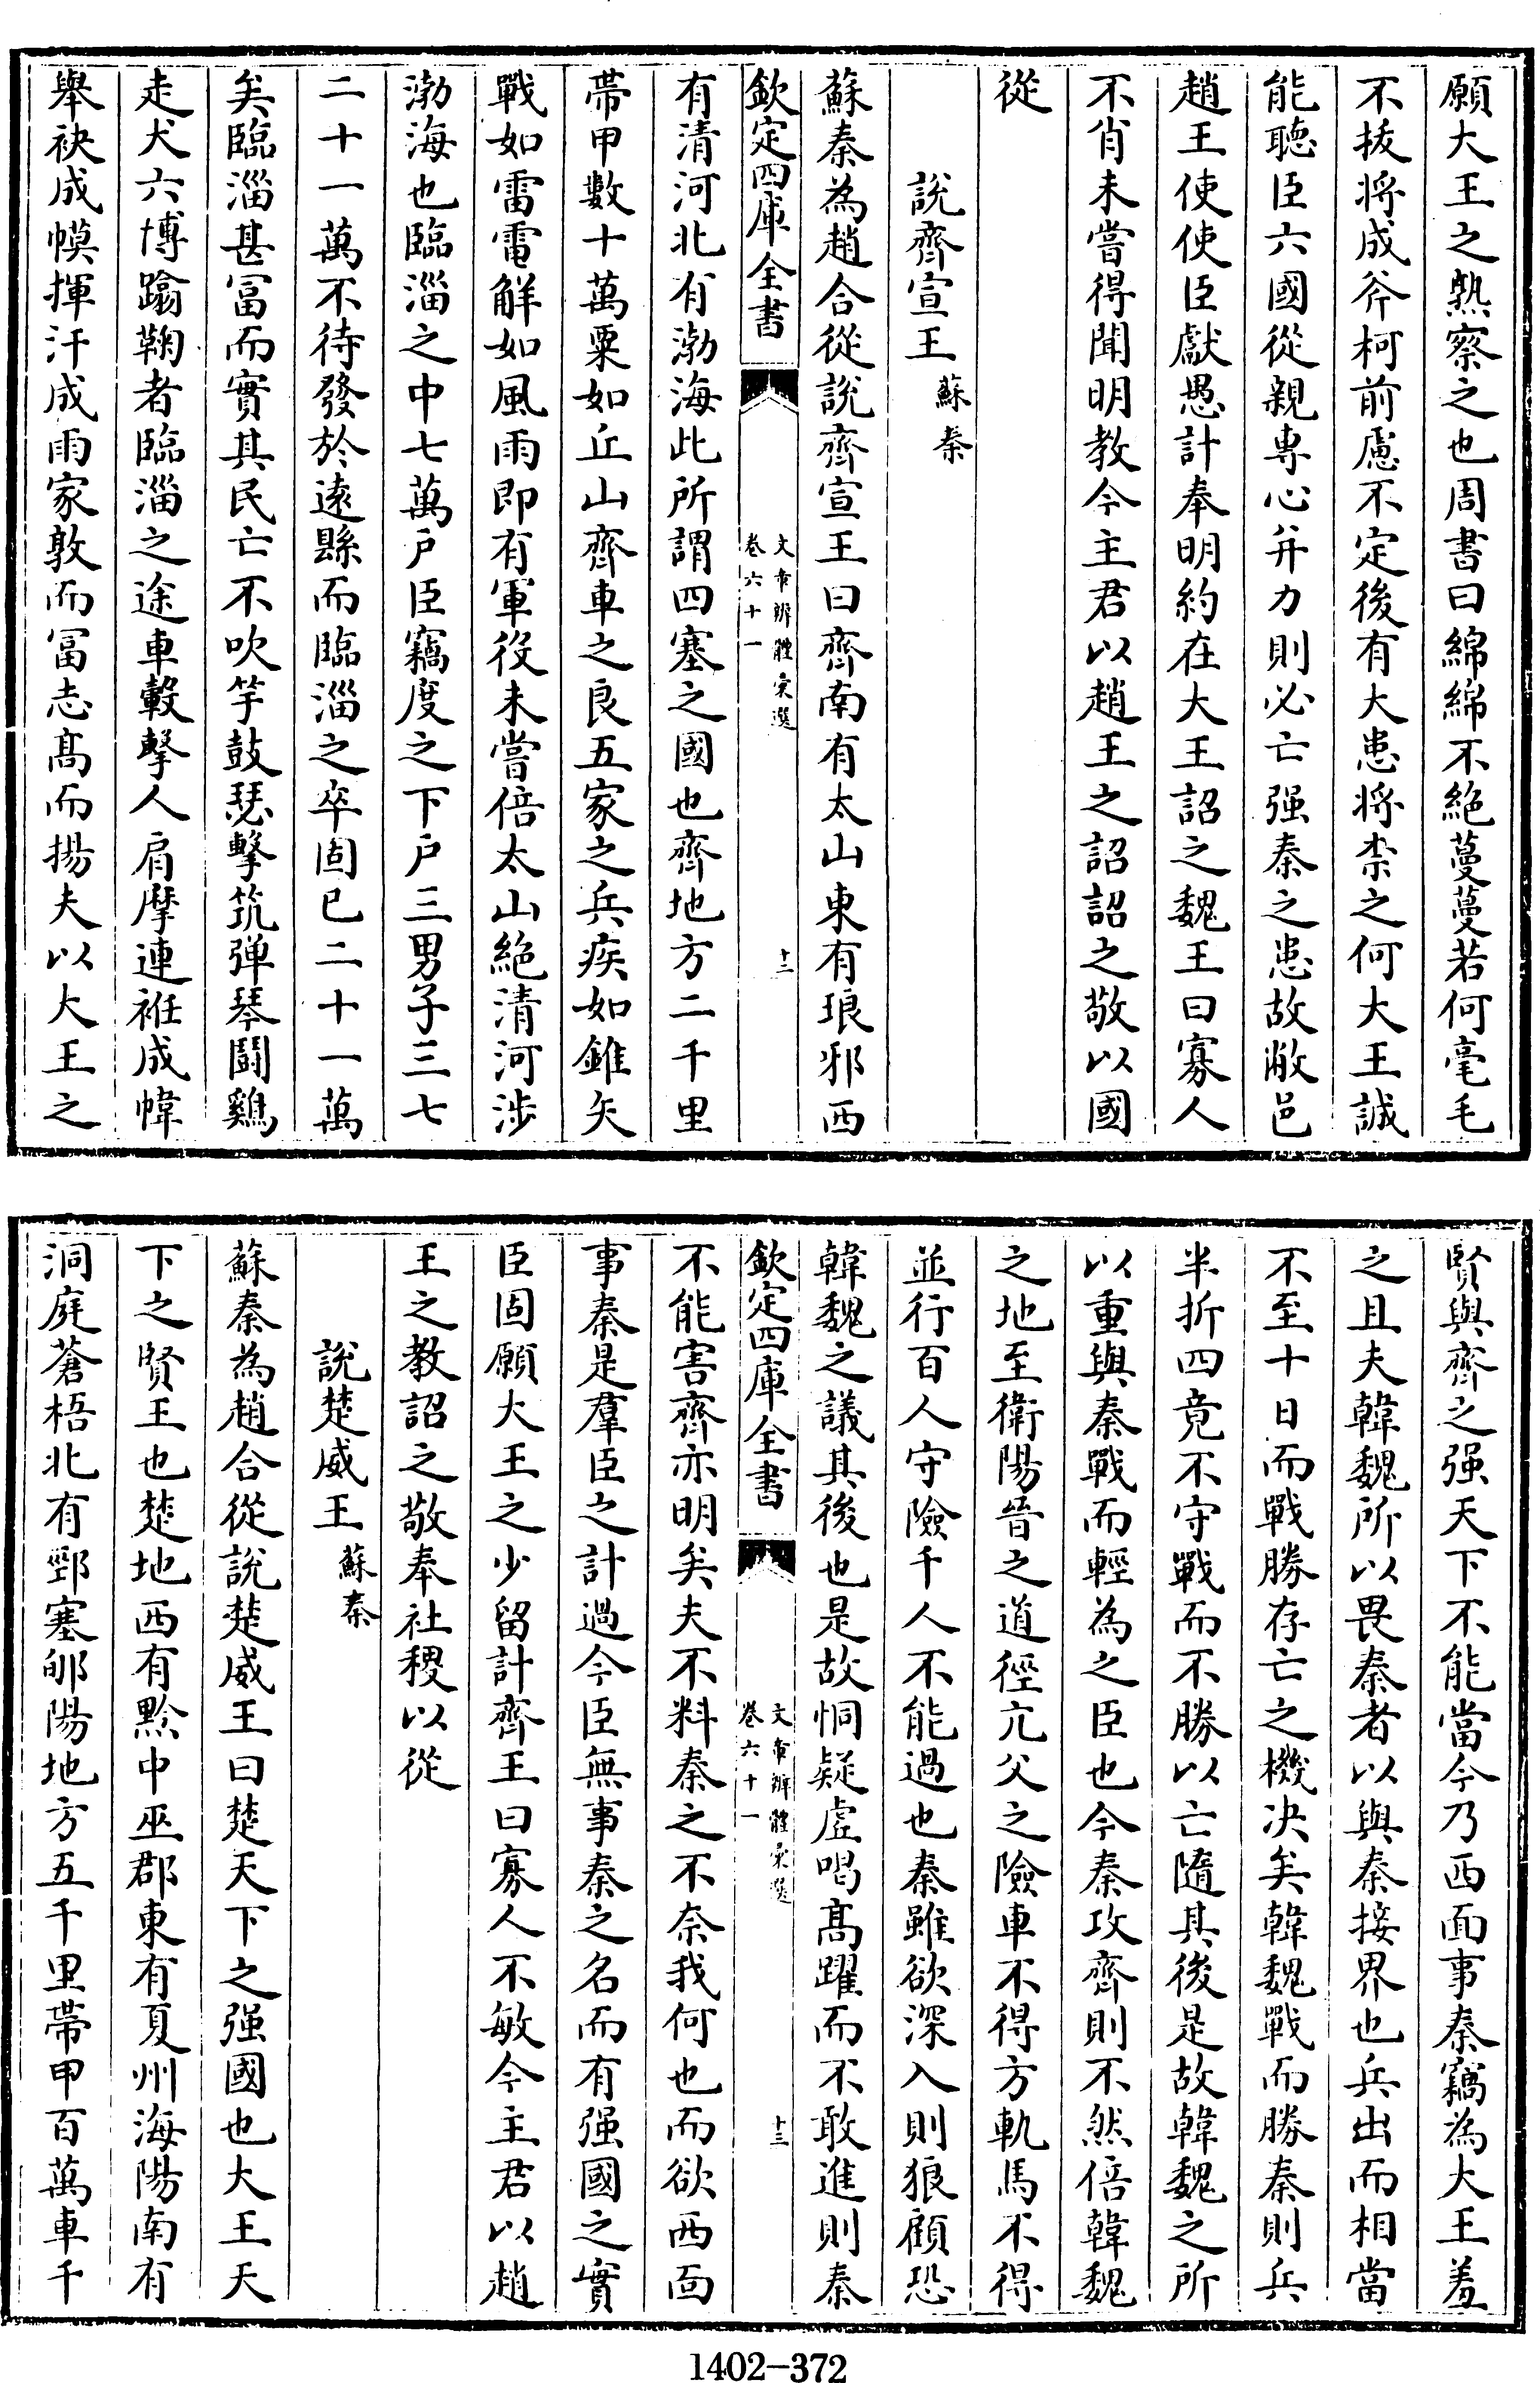 願大王之熟察之也周書曰綿綿不絶蔓蔓若何毫毛
不拔將成斧柯前慮不定後有大患將柰之何大王誠
能聽臣六國從親專心并力則必亡强秦之患故敝邑
趙王使使臣獻愚計奉明約在大王詔之魏王曰寡人
不肖未嘗得聞明教今主君以趙王之詔詔之敬以國
從
說齊宣王 蘇秦
蘇秦為趙合從說齊宣王曰齊南有太山東有琅邪西
欽定四庫全書 文章辨體彙選 卷六十一 十二
有清河北有渤海此所謂四塞之國也齊地方二千里
帶甲數十萬粟如丘山齊車之良五家之兵疾如錐矢
戰如雷電解如風雨即有軍役未嘗倍太山絶清河涉
渤海也臨淄之中七萬户臣竊度之下户三男子三七
二十一萬不待發於遠縣而臨淄之卒固已二十一萬
矣臨淄甚富而實其民亡不吹竽鼓瑟擊筑弹琴鬬鷄
走犬六博蹹鞠者臨淄之途車轂擊人肩摩連袵成幃
舉袂成幙揮汗成雨家敦而富志髙而揚夫以大王之
賢與齊之强天下不能當今乃西面事秦竊為大王羞
之且夫韓魏所以畏秦者以與秦接界也兵出而相當
不至十日而戰勝存亡之機决矣韓魏戰而勝秦則兵
半折四竟不守戰而不勝以亡隨其後是故韓魏之所
以重與秦戰而輕為之臣也今秦攻齊則不然倍韓魏
之地至衛陽晉之道徑亢父之險車不得方軌馬不得
並行百人守險千人不能過也秦雖欲深入則狼顧恐
韓魏之議其後也是故恫疑虚喝髙躍而不敢進則秦
欽定四庫全書 文章辨體彙選 卷六十一 十三
不能害齊亦明矣夫不料秦之不奈我何也而欲西面
事秦是羣臣之計過今臣無事秦之名而有强國之實
臣固願大王之少留計齊王曰寡人不敏今主君以趙
王之教詔之敬奉社稷以從
說楚威王 蘇秦
蘇秦為趙合從說楚威王曰楚天下之强國也大王天
下之賢王也楚地西有黔中巫郡東有夏州海陽南有
洞庭蒼梧北有郢塞郇陽地方五千里帶甲百萬車千
1402-372